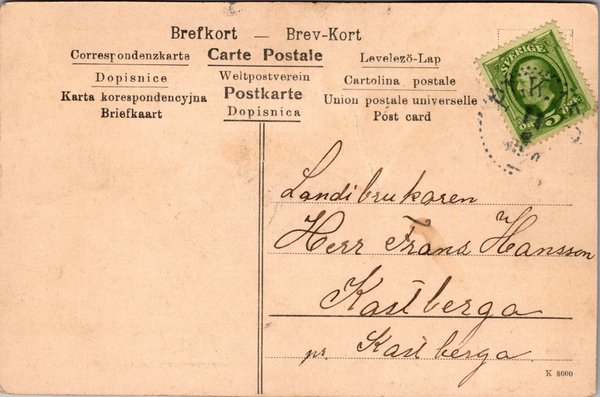 Brefkort — Brev-Kort
Correspondenzkarte Carte Postale Levelező-Lap
Dopisnice Weltpostverein Cartolina postale
Karta korespondencyjna Postkarte Union postale universelle
Briefkaart Dopisnica Post card
SVERIGE
5
Landtbrukaren
Herr Frans Hansson
Kastberga
pr. Kastberga
K 8000